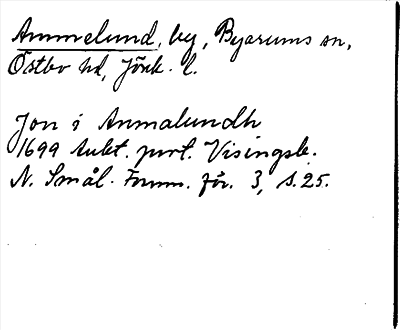 Ammelund, by, Byarums sn,
Östbo hd, Jönk. l.
Jon i Ammalundh
1699 Aukt. prot. Visingsb.
N. Smål. Fornm. för. 3, s. 25.